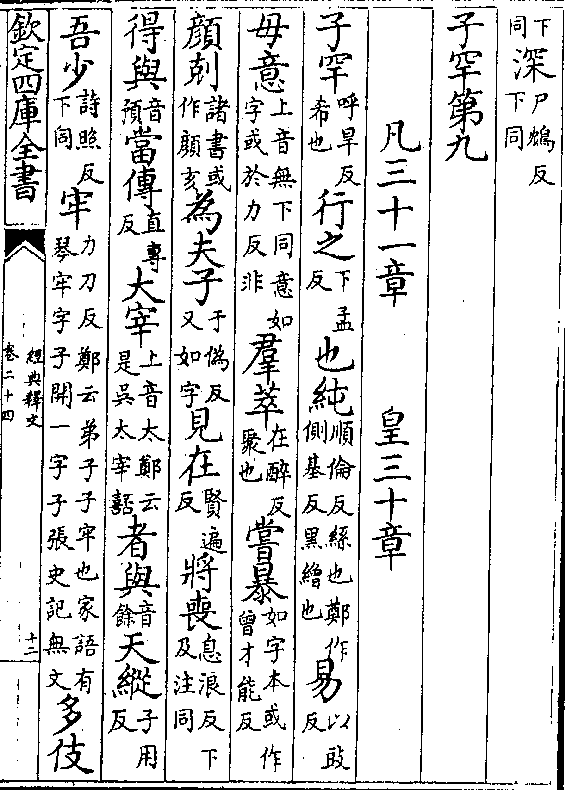 下尸鴆反
同深下同
子罕第九
凡三十一章　皇三十章
子罕呼旱反希也行之下孟反也純順倫反絲也鄭作側基反黑繒也易以豉反
毋意上音無下同意如字或於力反非羣萃在醉反聚也嘗暴如字本或作曾才能反
顏剋諸書或作顏亥為夫子于偽反又如字見在賢遍反將喪息浪反下及注同
得與音預當傳直專反大宰上音太鄭云是吳太宰嚭者與音餘天縱子用反
吾少詩照反下同牢力刀反鄭云弟子子牢也家語有琴牢字子開一字子張史記無文多伎
欽定四庫全書
經典釋文
卷二十四
十二